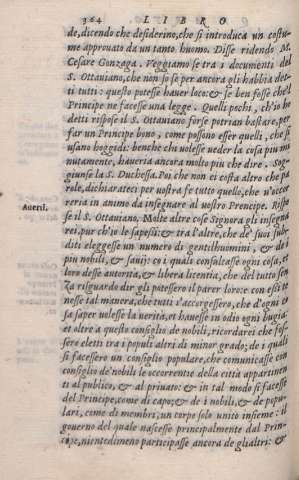 364 LIBRO
de, dicendo che desiderino, che si introduca un costu-
me approvato da un tanto huomo. Disse ridendo M.
Cesare Gonzaga, Veggiamo se tra i documenti del
S. Ottaviano, che non so se per ancora gli habbia det-
ti tutti: questo potesse haver loco: & se ben fosse che'l
Principe ne facesse una legge. Quelli pochi, ch'io ho
detti rispose il S. Ottaviano forse potrian bastare, per
far un Principe bono, come possono esser quelli, che si
usano hoggidi: benche chi volesse veder la cosa piu mi
nutamente, haveria ancora molto piu che dire. Sog-
giunse la S. Duchessa. Poi che non ci costa altro che pa
role, dichiarateci per vostra fe tutto quello, che v'occor
reria in animo da insegnare al vostro Prencipe. Rispo
se il S. Ottaviano. Molte altre cose Signora gli insegna
rei, pur ch'io le sapessi: & tra l'altre, che de' suoi sub-
diti eleggesse un numero di gentilhuomini, & de i
piu nobili, & savij: co i quali consultasse ogni cosa, et
loro desse autorità, & libera licentia, che del tutto sen
za risguardo dir gli potessero il parer loro: e con essi te
nesse tal manera, che tutti s'accorgessero, che d'ogni co
sa saper volesse la verità, et havesse in odio ogni bugia:
et oltre a questo consiglio de nobili, ricordarei che fos-
sero eletti tra i populi altri di minor grado; de i quali
si facessero un consiglio populare, che comunicasse con
consiglio de' nobili le occorrentie della città appartinen
ti al publico, & al privato: & in tal modo si facesse
del Principe, come di capo; & de i nobili, & de popu-
lari, come di membri, un corpo solo unito insieme: il
governo del quale nascesse principalmente dal Prin-
cipe, nientedimeno participasse ancora de gli altri: &
Avertì.